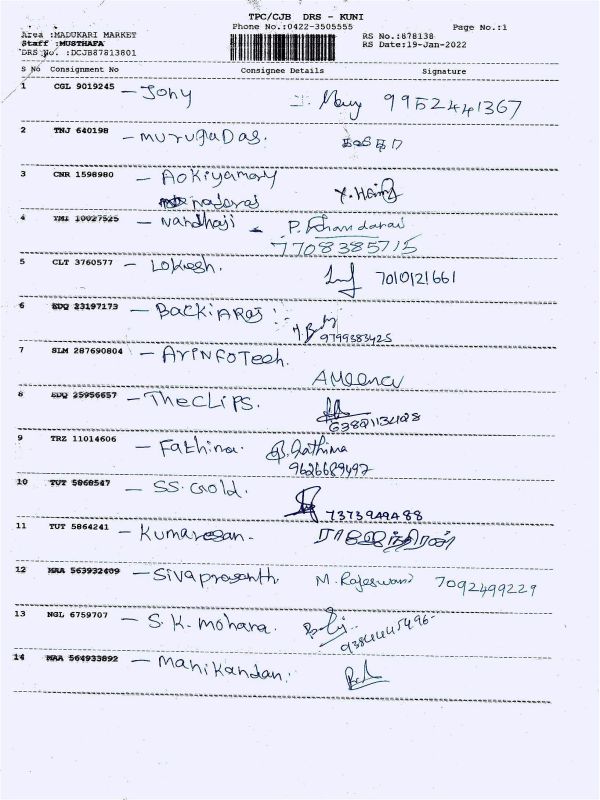 TPC/CJB DRS - KUNI
Area :MADUKARI MARKET Phone No.:0422-3505555 Page No.:1
Staff :MUSTHAFA RS No.:878138
DRS No. :DCJB87813801 RS Date:19-Jan-2022
S No Consignment No Consignee Details Signature
1 CGL 9019245 - Johy Mary 9952441367
2 TNJ 640198 - murugadas.
3 CNR 1598980 - Aokiyamary
4 TMI 10027525 - Nandhaji
7708385715
5 CLT 3760577 - Lokesh. 7010121661
6 EDQ 23197173 - BackiARaj
9799383425
7 SLM 287690804 - ArinfoTech.
Ameena
8 EDQ 25956657 - TheClips.
9 TRZ 11014606 - Fathina. Fathima
9626689497
10 TUT 5868547 - SS. Gold.
7373949488
11 TUT 5864241 - Kumaresan.
12 MAA 563932409 - Sivaprasanth M. Rajeswari 7092499229
13 NGL 6759707 - S.K. mohana.
9384445496
14 MAA 564933892 - Manikandan.